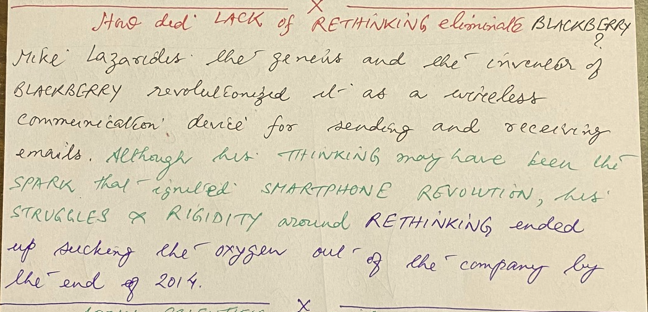 How did LACK of RETHINKING eliminate BLACKBERRY
?
Mike Lazarides the genius and the inventor of
BLACKBERRY revolutionized it as a wireless
communication device for sending and receiving
emails. Although his THINKING may have been the
SPARK that ignited SMARTPHONE REVOLUTION, his
STRUGGLES & RIGIDITY around RETHINKING ended
up sucking the oxygen out of the company by
the end of 2014.